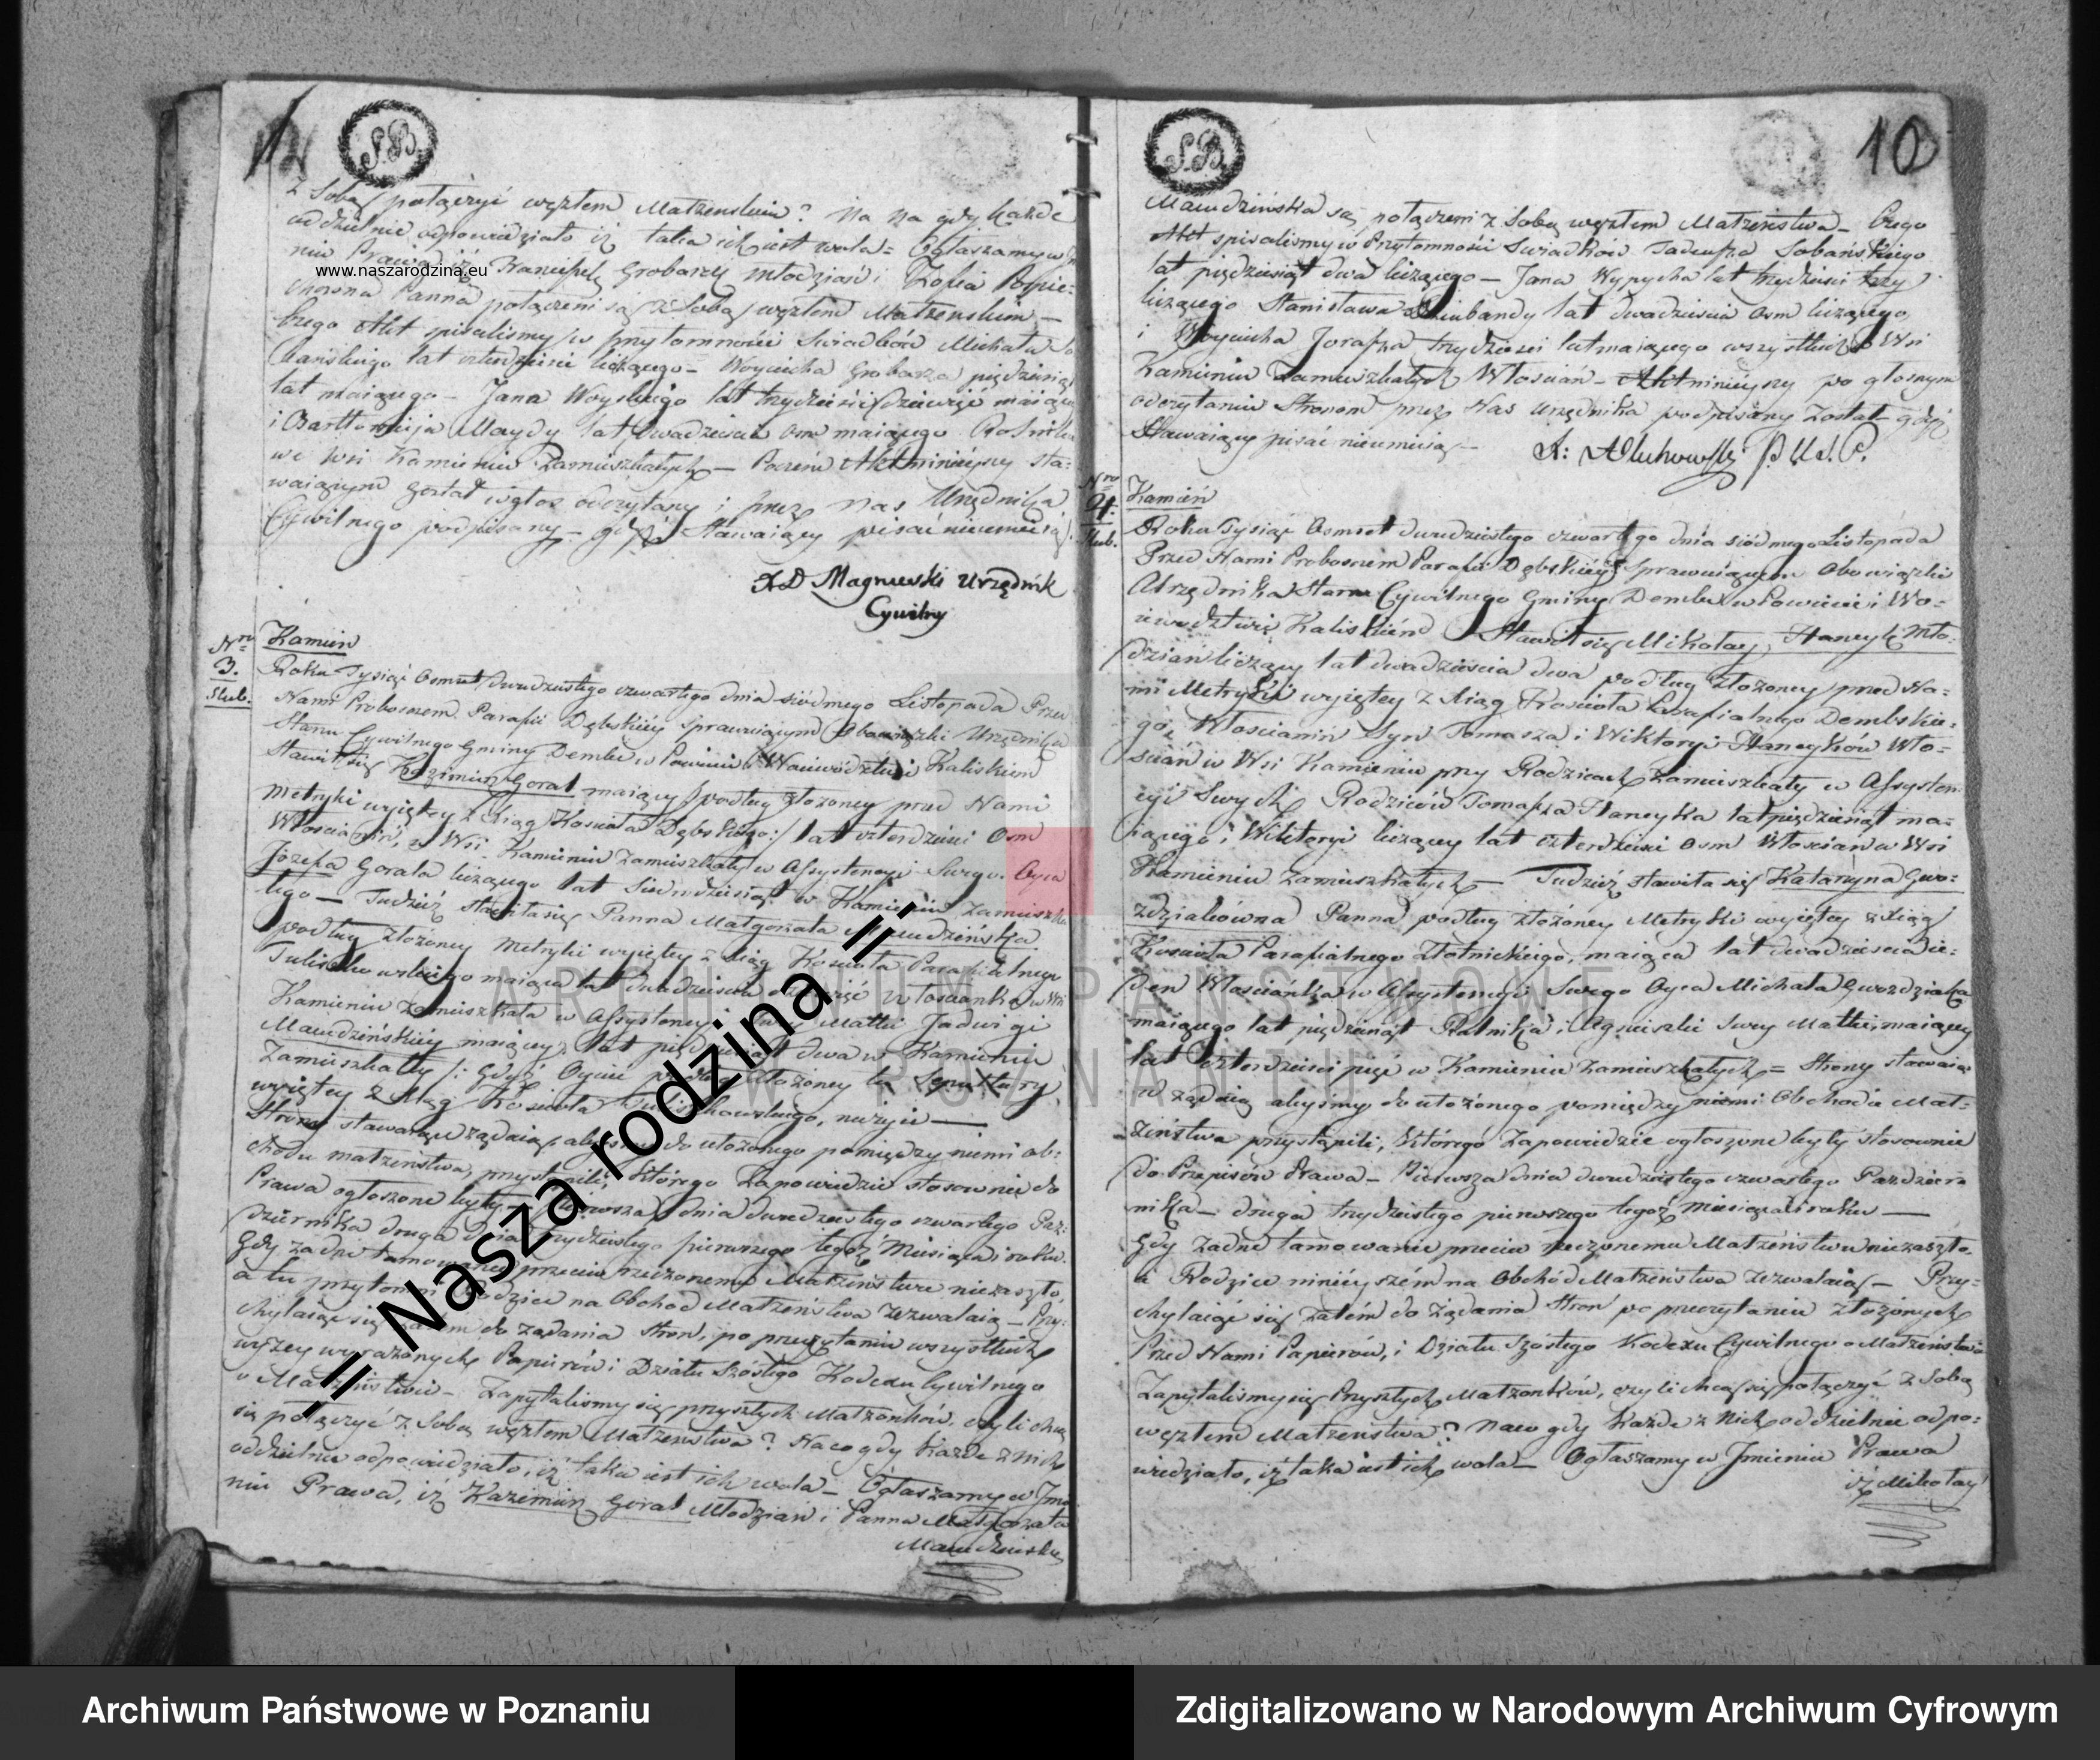 S.B.
z Sobą połączyć węzłem Małżenskim? Na na gdy każde
oddzielnie odpowiedziało iż taka ich iest wola = Ogłaszamy w
niu Prawa iż Franciszek Grobarzy Młodzian i Zofia
Panna połączeni są z Sobą węzłem Małżenskim —
Czego Akt spisalismy w przytomności Swiadków Michała So
bańskiego lat czterdzieści liczącego – Woyciecha Grobarza pięćdziesiąt
lat maiącego – Jana Woyskiego lat trzydzieści dziewięć maiące
i Bartłomieja Maydy lat dwadzieścia osm maiącego
we wsi Kamieniu Zamieszkałych — Poczem Akt ninieyszy sta=
waiącym został w głos odczytany i przez nas Urzędnika
Cywilnego podpisany – gdyż Stawaiący pisać nieumieią.
XD Magnuski Urzędnik
Cywilny
Nro
3.
Slub.
Kamień
Roku Tysiąc Osmset dwudziestego czwartego dnia siódmego Listopada Przed
Nami Proboszczem Parafii Dębskiéy sprawuiącym Obowiązki Urzędnika
Stanu Cywilnego Gminy Dembe w Powiecie i Woiewództwie Kaliskiem
Stawił się Kazimierz Goral maiący podług złożoney przed Nami
Metryki wyiętey z Xiąg Kościoła Dębskiego:/ lat czterdzieści Osm
Włoscianin, w Wsi Kamieniu zamieszkały w Assystencyi Swego Oyca
Józefa Gorala liczącego lat Siedmdziesiąt w Kamieniu zamieszka
łego — Tudzież stawiła się Panna Małgorzata
podług złożoney Metryki wyiętey z Xiąg Kościoła Parafialnego
Tuliszkowskiego maiąca lat dwadzieścia Włoscianka w Wsi
Kamieniu Zamieszkała w Assystencyi Swey Matki Jadwigi
maiącey lat pięćdziesiąt dwa w Kamieniu
Zamieszkałey /: Gdyż Oyciec podług złożoney tu Sepultury
wyiętey z Xiąg Kościoła Tuliszkowskiego, nieżyie —
Strony stawaiące żądaią abysmy do ułożonego pomiędzy niemi ob=
chodu małżeństwa, przystąpili, którego Zapowiedzie stosownie do
Prawa ogłoszone były – Pierwsza dnia dwudziestego czwartego Paz=
dziernika druga dnia trzydziestego pierwszego tegoż Miesiąca i roku.
Gdy żadne tamowanie przeciw rzeczonemu Małżeństwu niezaszło,
a tu przytomni Rodzice na Obchód Małżeństwa zezwalaią – Przy=
chylaiąc się zatem do żądania Stron, po przeczytaniu wszystkich
wyżey wyrażonych Papierów i Działu Szóstego Kodexu Cywilnego
o Małżeństwie – Zapytalismy się przyszłych Małżonków, czyli chcą
się połączyć z Sobą węzłem Małżeństwa? Na co gdy każde z nich
oddzielnie odpowiedziało, iż taka iest ich wola – Ogłaszamy w Jmie
niu Prawa, iż Kazimierz Goral Młodzian i Panna Małgorzata
S.B.
10
są połączeni z Sobą węzłem Małżeństwa – Czego
Akt spisalismy w Przytomności Swiadków Tadeusza Sobańskiego
lat pięćdziesiąt dwa liczącego – Jana Wypycha lat trzydzieści trzy
liczącego Stanisława lat dwadzieścia Osm liczącego
i Woyciecha Jorasza trzydzieści lat maiącego wszystkich w Wsi
Kamieniu Zamieszkałych Włoscian – Akt ninieyszy po głosnym
odczytaniu Stronom przez Nas Urzędnika podpisany został gdyż
Stawaiący pisać nieumieią –
Nro
4.
Slub.
Kamień
Roku Tysiąc Osmset dwudziestego czwartego dnia siódmego Listopada
Przed Nami Proboszczem Parafii Dębskiéy Sprawuiącym Obowiązki
Urzędnika Stanu Cywilnego Gminy Dembe w Powiecie i Wo=
iewództwie Kaliskiém Stawił się Mikołay Hanczyk Mło=
dzian liczący lat dwadzieścia dwa podług złożoney przed Na=
mi Metryki wyiętey z Xiąg Kościoła Parafialnego Dembskie=
go, Włoscianin Syn Tomasza i Wiktoryi Hanczyków Wło=
scian w Wsi Kamieniu przy Rodzicach zamieszkały w Assysten
cyi Swych Rodziców Tomasza Hanczyka lat pięćdziesiąt ma=
iącego i Wiktoryi liczącey lat czterdzieści osm Włoscian w Wsi
Kamieniu zamieszkałych — Tudzież stawiła się Katarzyna Gwo=
zdzialówna Panna podług złożoney Metryki wyiętey z Xiąg
Kościoła Parafialnego Złotnickiego, maiąca lat dwadzieścia ie=
den Włoscianka w Assystencyi Swego Oyca Michała Gwozdziala
maiącego lat pięćdziesiąt Rolnika i Agnieszki Swey Matki, maiącey
lat czterdzieści pięć w Kamieniu Zamieszkałych = Strony stawaią=
ce żądaią abyśmy do ułożonego pomiędzy niemi Obchodu Mał=
żeństwa przystąpili, którego Zapowiedzie ogłoszone były stosownie
do Przepisów Prawa – Pierwsza dnia dwudziestego czwartego Pazdzier
nika – druga trzydziestego pierwszego tegoż Miesiąca i roku —
Gdy żadne tamowanie przeciw rzeczonemu Małżeństwu niezaszło
a Rodzice ninieyszém na Obchód Małżeństwa zezwalaią – Przy=
chylaiąc się zatém do żądania Stron po przeczytaniu złożonych
Przed Nami Papierów, i Działu Szóstego Kodexu Cywilnego o Małżeństwie
Zapytalismy się Przyszłych Małżonków, czyli chcą się połączyć z Sobą
węzłem Małżeństwa? Na co gdy każde z Nich oddzielnie odpo=
wiedziało, iż taka iest ich wola – Ogłaszamy w Jmieniu Prawa
iż Mikołay
www.naszarodzina.eu
.:|| Nasza rodzina ||
ARCHIWUM PAŃSTWOWE
W POZNANIU
Archiwum Państwowe w Poznaniu
Zdigitalizowano w Narodowym Archiwum Cyfrowym